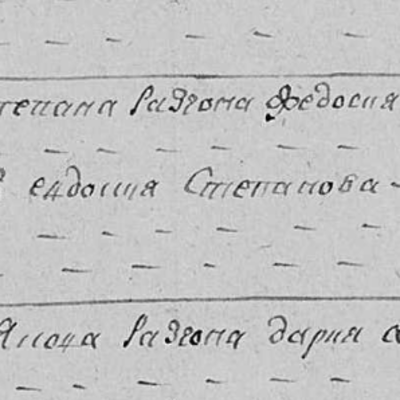 тепана Разгона Федосия
евдокия Степанова
Якова Разгона дария